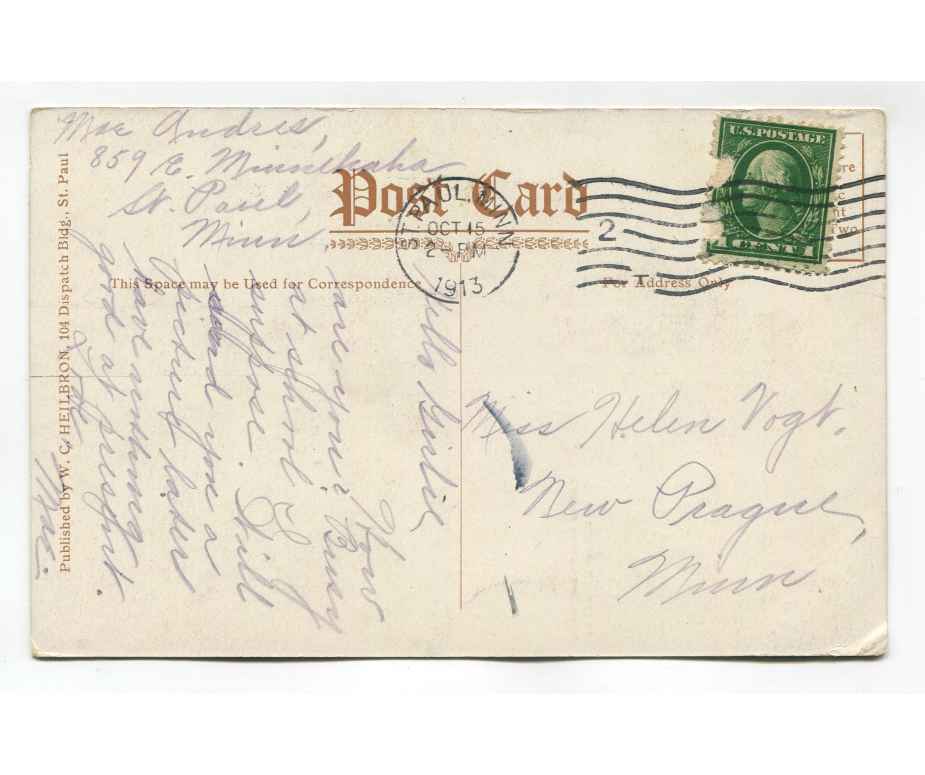 Mae Andres,
859 E. Minnehaha
St. Paul,
Minn.
Post Card
This Space may be Used for Correspondence
For Address Only
ST. PAUL, MINN.
OCT 15
2 PM
1913
2
U.S. POSTAGE
1 CENT 1
Two
Hello Girlie
How
are you? Busy
at school I
suppose. Will
send you a
picture later
have nothing
good at present.
Love
Mae.
Miss Helen Vogt.
New Prague,
Minn
Published by W. C. HEILBRON, 104 Dispatch Bldg., St. Paul